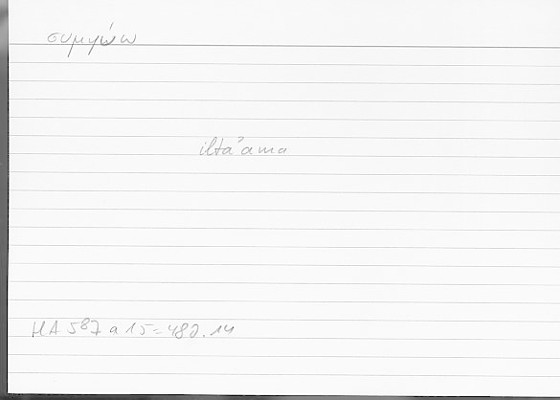 συμφύω
iltaʾama
HA 587 a 15 = 482.14